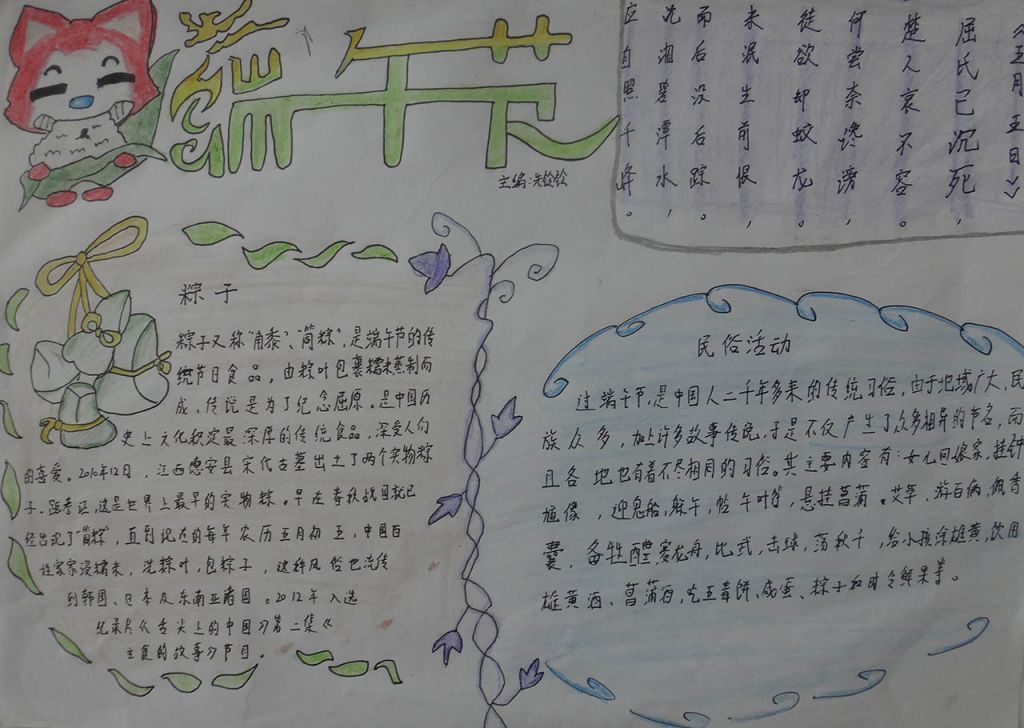 端午节
主编:朱
《五月五日》
屈氏已沉死，
楚人哀不容。
何尝奈谗谤，
徒欲却蛟龙。
未泯生前恨，
而后没后踪。
沈湘碧潭水，
应自照千峰。
粽子
粽子又称"角黍"、"筒粽"，是端午节的传
统节日食品，由粽叶包裹糯米蒸制而
成。传说是为了纪念屈原。是中国历
史上文化积淀最深厚的传统食品，深受人们
的喜爱。2010年12月，江西德安县宋代古墓出土了两个实物粽
子。据考证，这是世界上最早的实物粽。早在春秋战国就已
经出现了"筒粽"，直到现在的每年农历五月初五，中国百
姓家家浸糯米，洗粽叶，包粽子，这种风俗也流传
到韩国、日本及东南亚诸国。2012年入选
纪录片《舌尖上的中国》第二集《
主食的故事》节目。
民俗活动
过端午节，是中国人二千年多来的传统习俗，由于地域广大，民
族众多，加上许多故事传说，于是不仅产生了众多相异的节名，而
且各地也有着不尽相同的习俗。其主要内容有：女儿回娘家，挂钟
馗像，迎鬼船，躲午，帖午叶符，悬挂菖蒲。艾草，游百病，佩香
囊，备牲醴，赛龙舟，比武，击球，荡秋千，给小孩涂雄黄，饮用
雄黄酒、菖蒲酒，吃五毒饼、咸蛋、粽子和时令鲜果等。